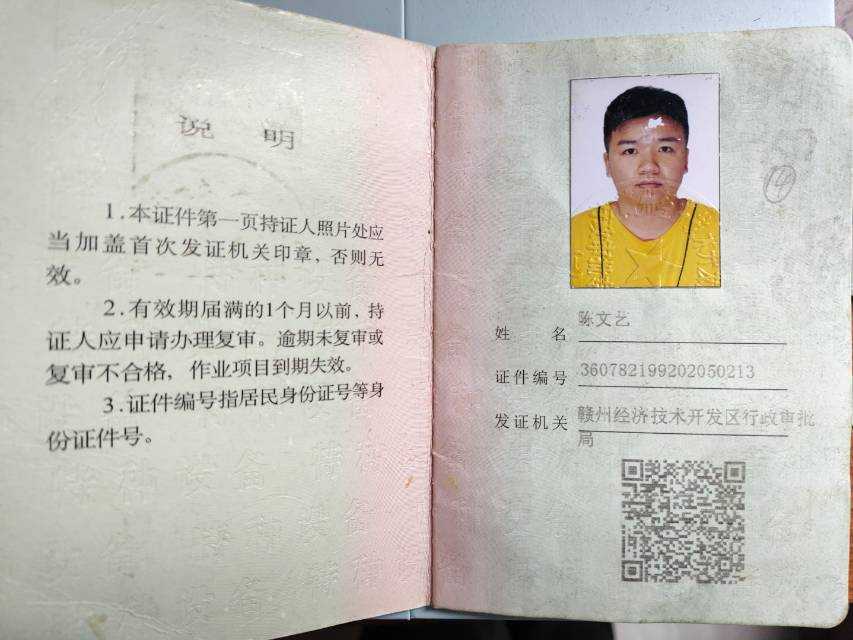 说 明
1.本证件第一页持证人照片处应
当加盖首次发证机关印章，否则无
效。
2.有效期届满的1个月以前，持
证人应申请办理复审。逾期未复审或
复审不合格，作业项目到期失效。
3.证件编号指居民身份证号等身
份证件号。
姓 名 陈文艺
证件编号 360782199202050213
发证机关 赣州经济技术开发区行政审批
局
14